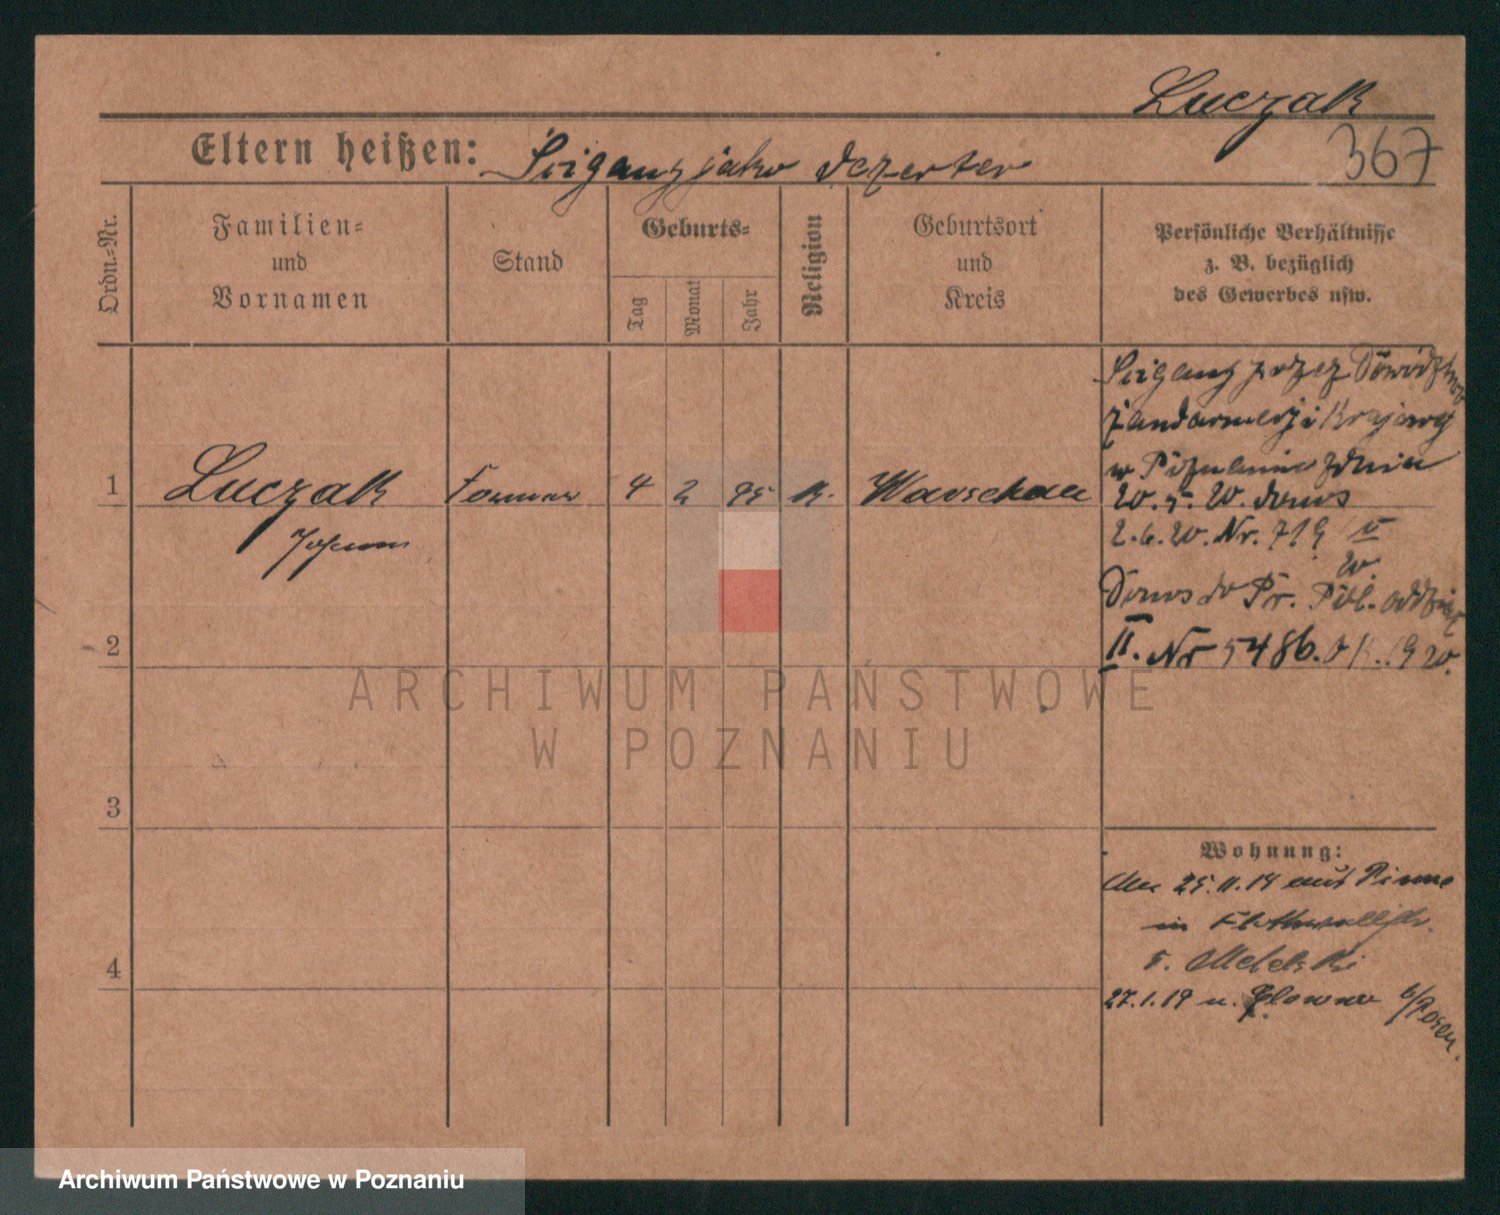 Luczak
367
Eltern heißen: Ścigany jako dezerter
Ordn.-Nr.
Familien- und Vornamen
Stand
Geburts-
Tag
Monat
Jahr
Religion
Geburtsort und Kreis
Persönliche Verhältnisse
z. B. bezüglich
des Gewerbes usw.
Ścigany przez Dowództwo
Żandarmerji Krajowej
w Poznaniu
20. 5. 20. donos
2. 6. 20. Nr. 719 V
20.
Donos do Pr. Pol. oddział
II. Nr 5486. 1920.
1 Luczak Former 4 2 95 K. Warschau
Johann
2
3
4
Wohnung:
25. 11. 14 aus Pinne
in
b.
27. 1. 19 n. Glowno b/Posen.
ARCHIWUM PAŃSTWOWE
W POZNANIU
Archiwum Państwowe w Poznaniu